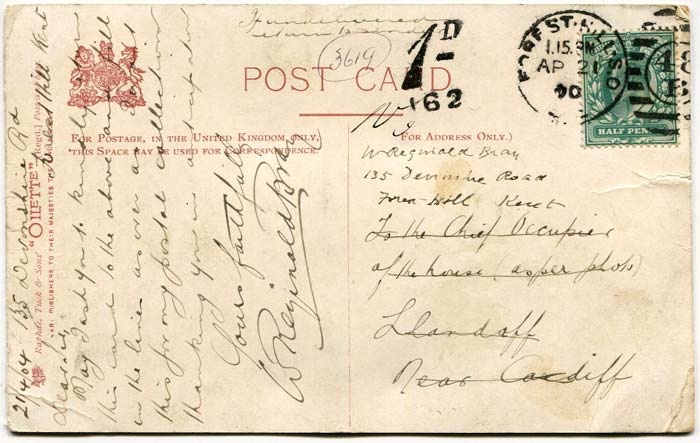 If undelivered
return to sender
3619
1D
162
FOREST HILL S.O.
1.15 PM
AP 21
HALF PEN
POST CARD
FOR POSTAGE, IN THE UNITED KINGDOM ONLY,
THIS SPACE MAY BE USED FOR CORRESPONDENCE.
(FOR ADDRESS ONLY.)
W Reginald Bray
135 Devonshire Road
Forest Hill Kent
To the Chief Occupier
of the house (as per photo)
Llandaff
Near Cardiff
Raphael Tuck & Sons' "OILETTE" [Regd.]
ART PUBLISHERS TO THEIR MAJESTIES
21/4/04 135 Devonshire Rd
Forest Hill Kent
Dear Sir,
May I ask you to kindly return
this card to the above and fill
in the lines as over as I want
this for my postal collection
Thanking you in anticipation
Yours faithfully
W Reginald Bray